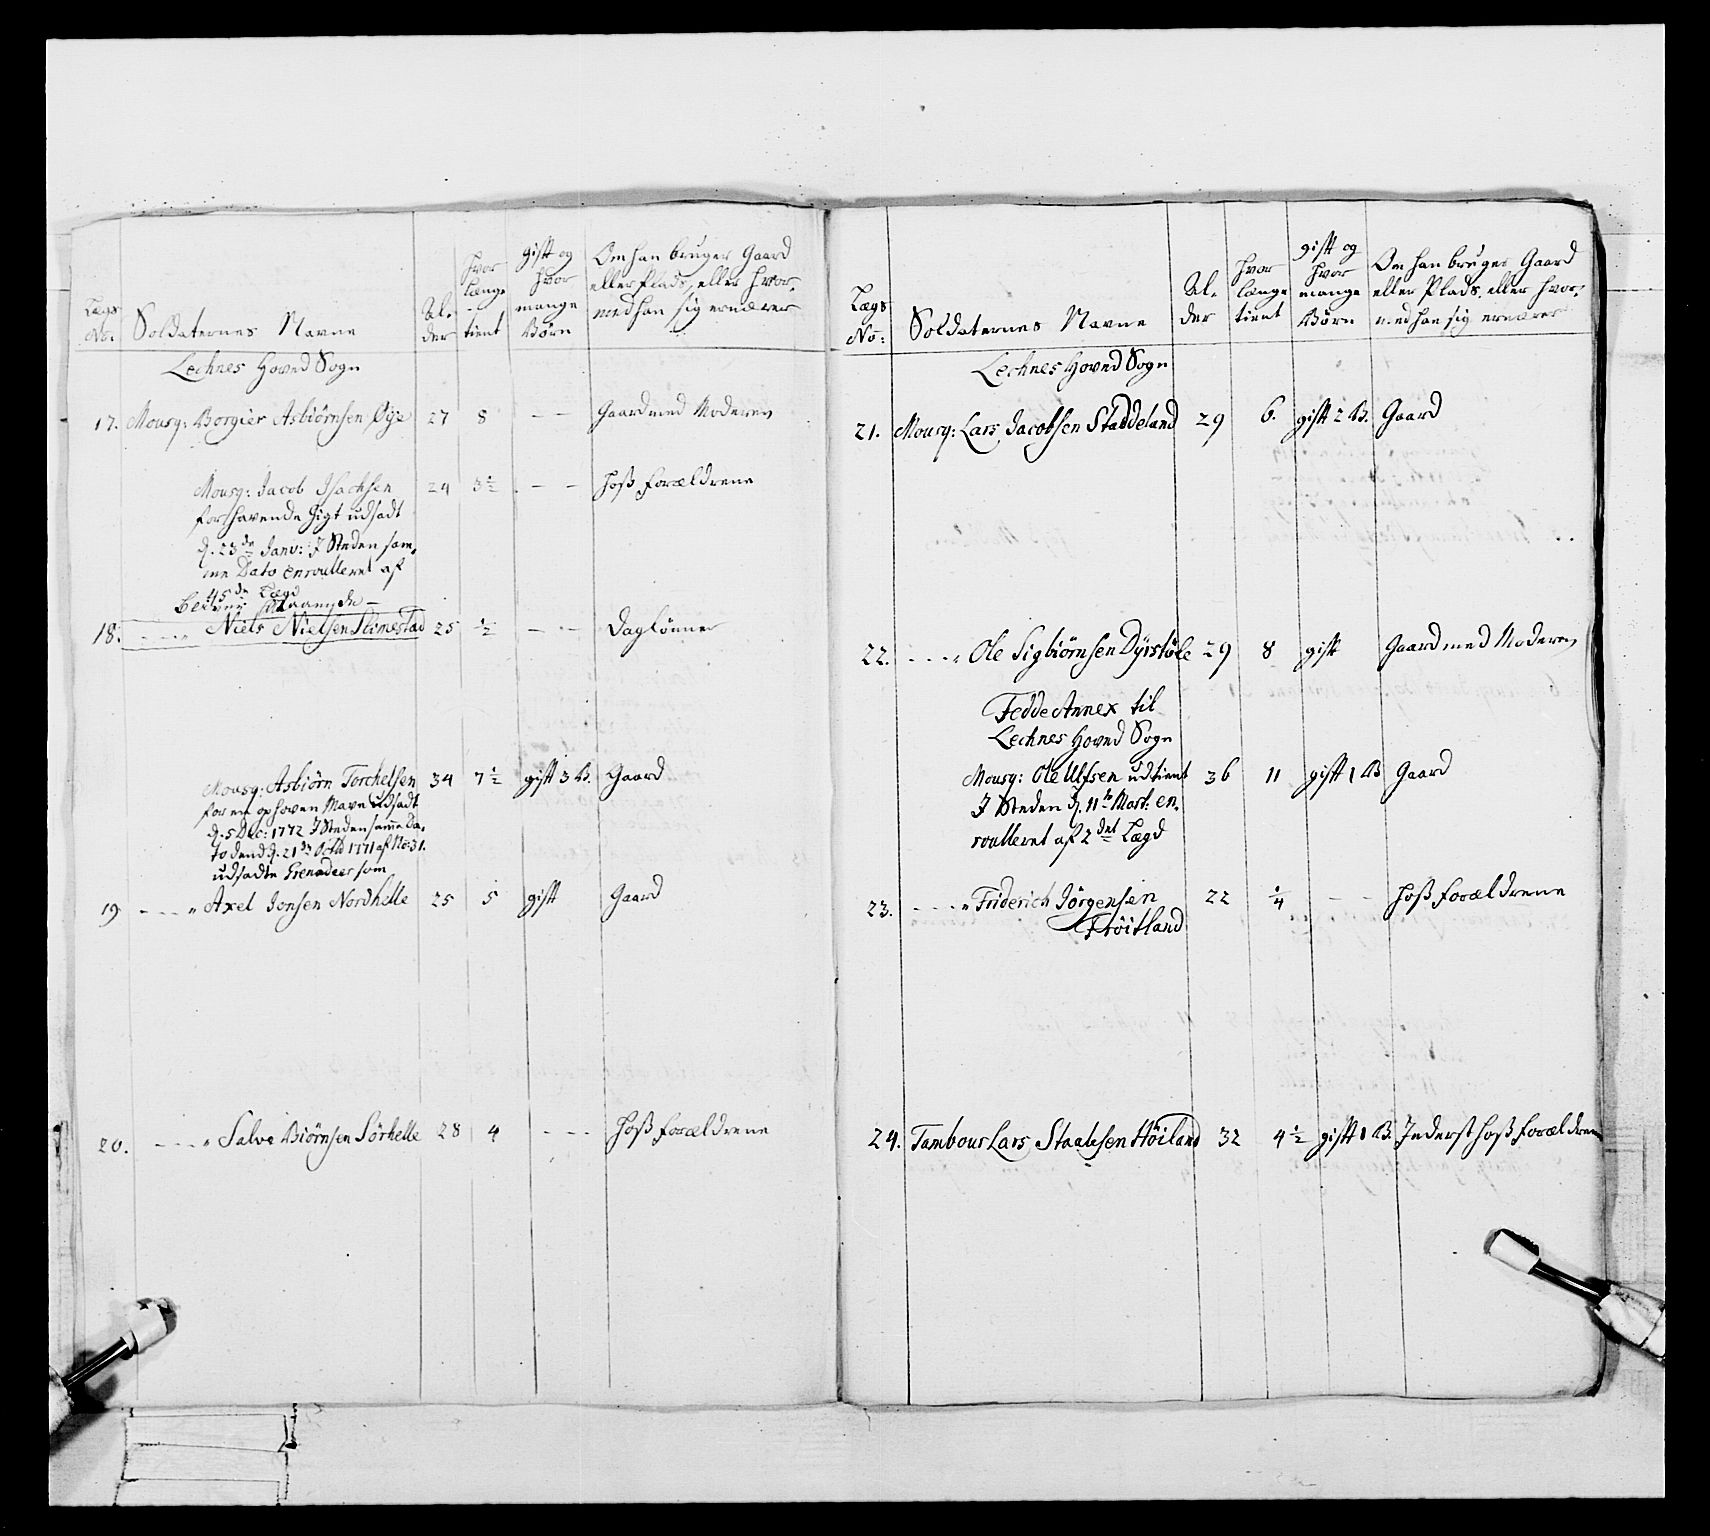 Lægs No:
Soldaternes Navne
Al- der
hvor længe tient
gift og hvor mange Børn
Om han bruger Gaard eller Plads, eller hvor- med han sig ernærer
Lechnes Hoved Sogn
17. Mousq: Borgier Asbiörnsen Öÿe 27 8 - - Gaard med Moderen
Mousq: Jacob Isachsen 24 3½ - - hoß forældrene
for havende Gigt udsadt
d. 23de Janv: I Steden sam-
me Dato enroulleret af
45de Lægd
18. - - - " Niels Nielsen Slimestad 25 ½ - - Daglönner
Mousq: Asbiörn Torchelsen 34 7½ gift 3 B. Gaard
for en ophoven Mave udsadt
d. 5 Dec: 1772 I Steden samme Da-
to dend d. 21de Octb 1771 af No: 31.
udsadte Grenadeer som
19. - - - " Axel Jonsen Nordhelle 25 5 gift Gaard
20. - - - " Salve Biörnsen Sörhelle 28 4 - - - hoß forældrene
Lægs No:
Soldaternes Navne
Al- der
hvor længe tient
gift og hvor mange Börn
Om han bruger Gaard eller Plads, eller hvor- med han sig ernærer
Lechnes Hoved Sogn
21. Mousq: Lars Jacobsen Staddeland 29 6. gift 2 B. Gaard
22. - - - " Ole Sigbiörnsen Dÿrstöle 29 8 gift Gaard med Moderen
Fedde Annex til
Lechnes Hoved Sogn
Mousq: Ole Ulfsen udtient 36 11 gift 1 B Gaard
I Steden d. 11te Mart: en-
roulleret af 2det Lægd
23. - - - " Friderich Jörgensen 22 ¼ - - hoß forældrene
Fröitland
24. Tambour Lars Staalesen Höiland 32 4½ gift 1 B. Inderst hoß forældrene